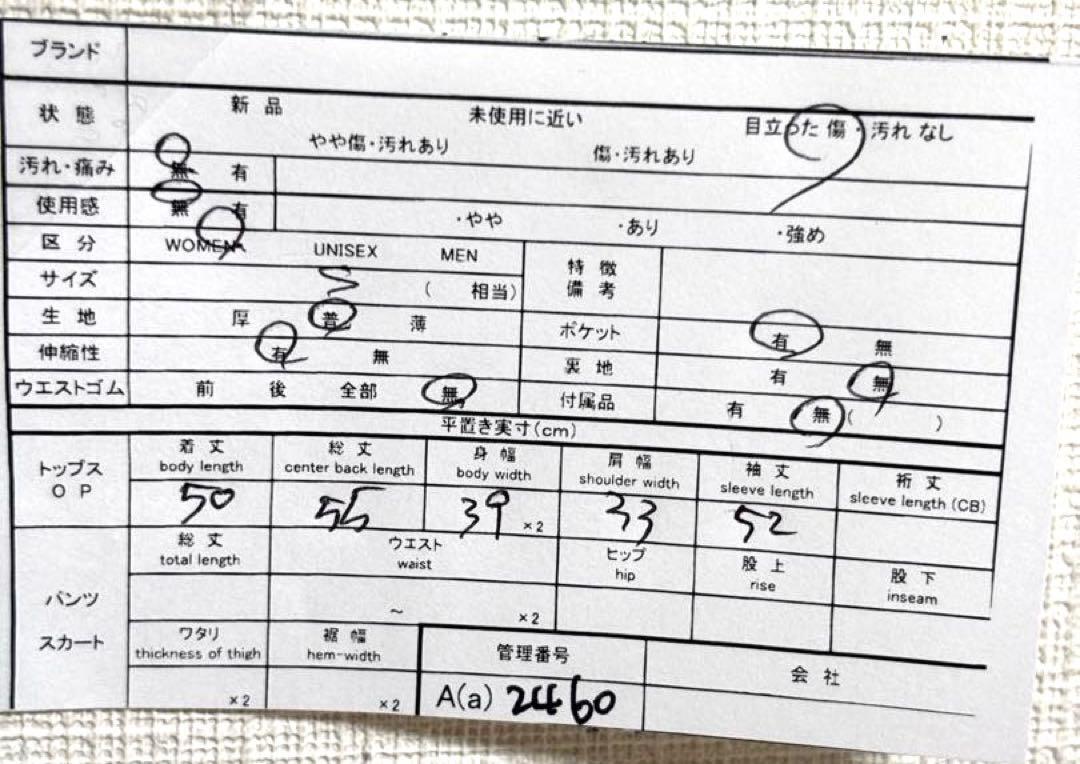 ブランド
状態 新品 未使用に近い 目立った傷・汚れなし
やや傷・汚れあり 傷・汚れあり
汚れ・痛み 無 有
使用感 無 有 ・やや ・あり ・強め
区分 WOMEN UNISEX MEN 特徴
備考
サイズ S ( 相当)
生地 厚 普 薄 ポケット 有 無
伸縮性 有 無 裏地 有 無
ウエストゴム 前 後 全部 無 付属品 有 無 ( )
平置き実寸(cm)
トップス
OP
着丈 総丈 身幅 肩幅 袖丈 裄丈
body length center back length body width shoulder width sleeve length sleeve length (CB)
50 55 39 ×2 33 52
パンツ
スカート
総丈 ウエスト ヒップ 股上 股下
total length waist hip rise inseam
～ ×2
ワタリ 裾幅 管理番号 会社
thickness of thigh hem-width
×2 ×2 A(a) 2460